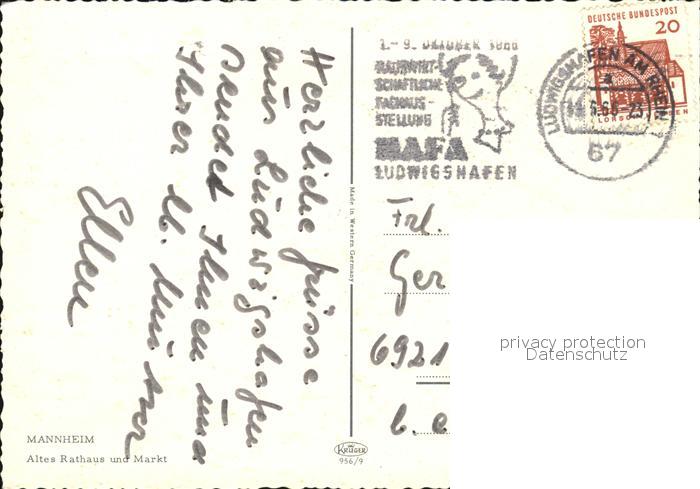 Herzliche Grüsse
aus Ludwigshafen
sendet Ihnen und
Ihrer lb. Mutter
Ellen
MANNHEIM
Altes Rathaus und Markt
Made in Western Germany
KRÜGER
956/9
1.-9. OKTOBER 1966
HAUSWIRT-
SCHAFTLICHE
FACHAUS-
STELLUNG
HAFA
LUDWIGSHAFEN
LUDWIGSHAFEN AM RHEIN
a
67
DEUTSCHE BUNDESPOST
20
LORSCH
Frl.
Ger
6921
b.
privacy protection
Datenschutz